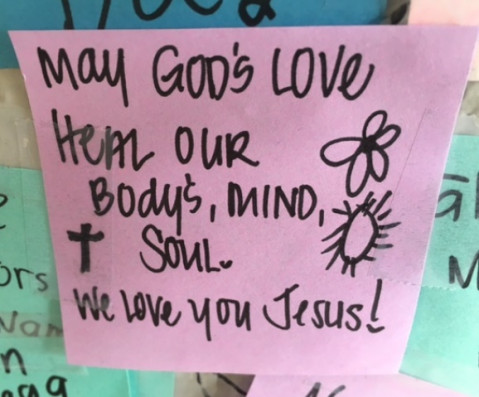 May God's Love
Heal our
Body's, Mind,
Soul.
We Love you Jesus!
ors